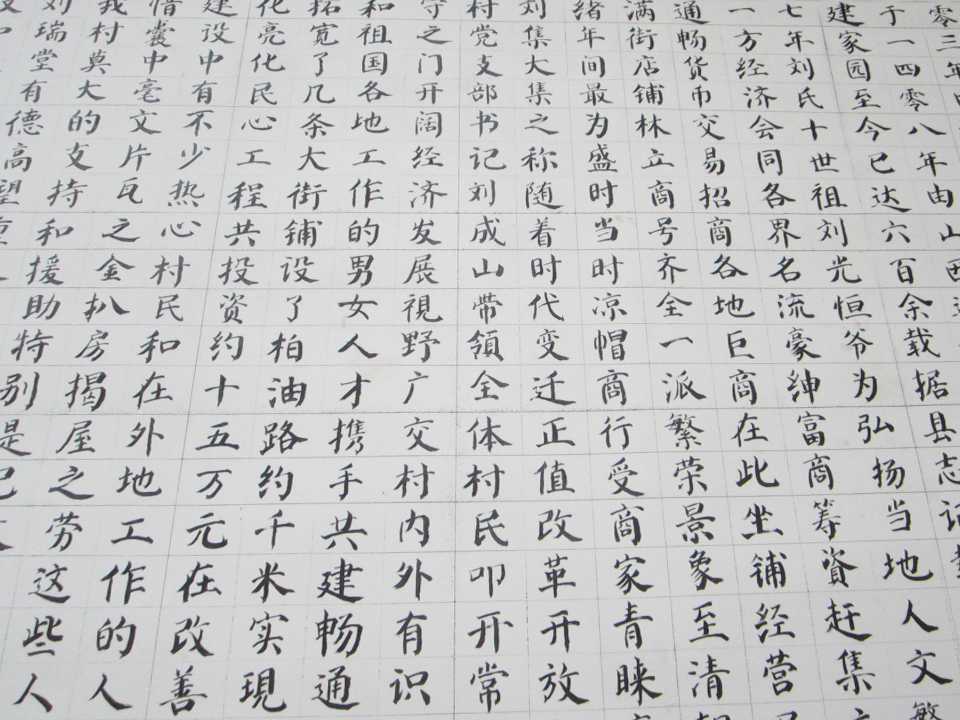 零三年
于一四零八年由山西
建家园至今已达六百余载据县志记
七年刘氏十世祖刘光恒爷为弘扬当地人文繁
一方经济会同各界名流豪绅富商筹资赶集
通畅货币交易招商各地巨商在此坐铺经营
满街店铺林立商号齐全一派繁荣景象至清
绪年间最为盛时当时凉帽商行受商家青睐
刘集大集之称随着时代变迁正值改革开放
村党支部书记刘成山带領全体村民叩开常
守之门开阔经济发展視野广交村内外有识
和祖国各地工作的男女人才携手共建畅通
拓宽了几条大街铺设了柏油路约千米实現
化亮化民心工程共投资约十五万元在改善
建设中有不少热心村民和在外地工作的人
惜囊中毫文片瓦之金扒房揭屋之劳这些人
我村莫大的支持和援助特别是
刘瑞堂有德高望重